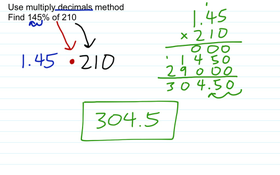 Use multiply decimals method
Find 145% of 210
1.45 • 210
1.45
× 210
000
1450
29000
304.50
304.5